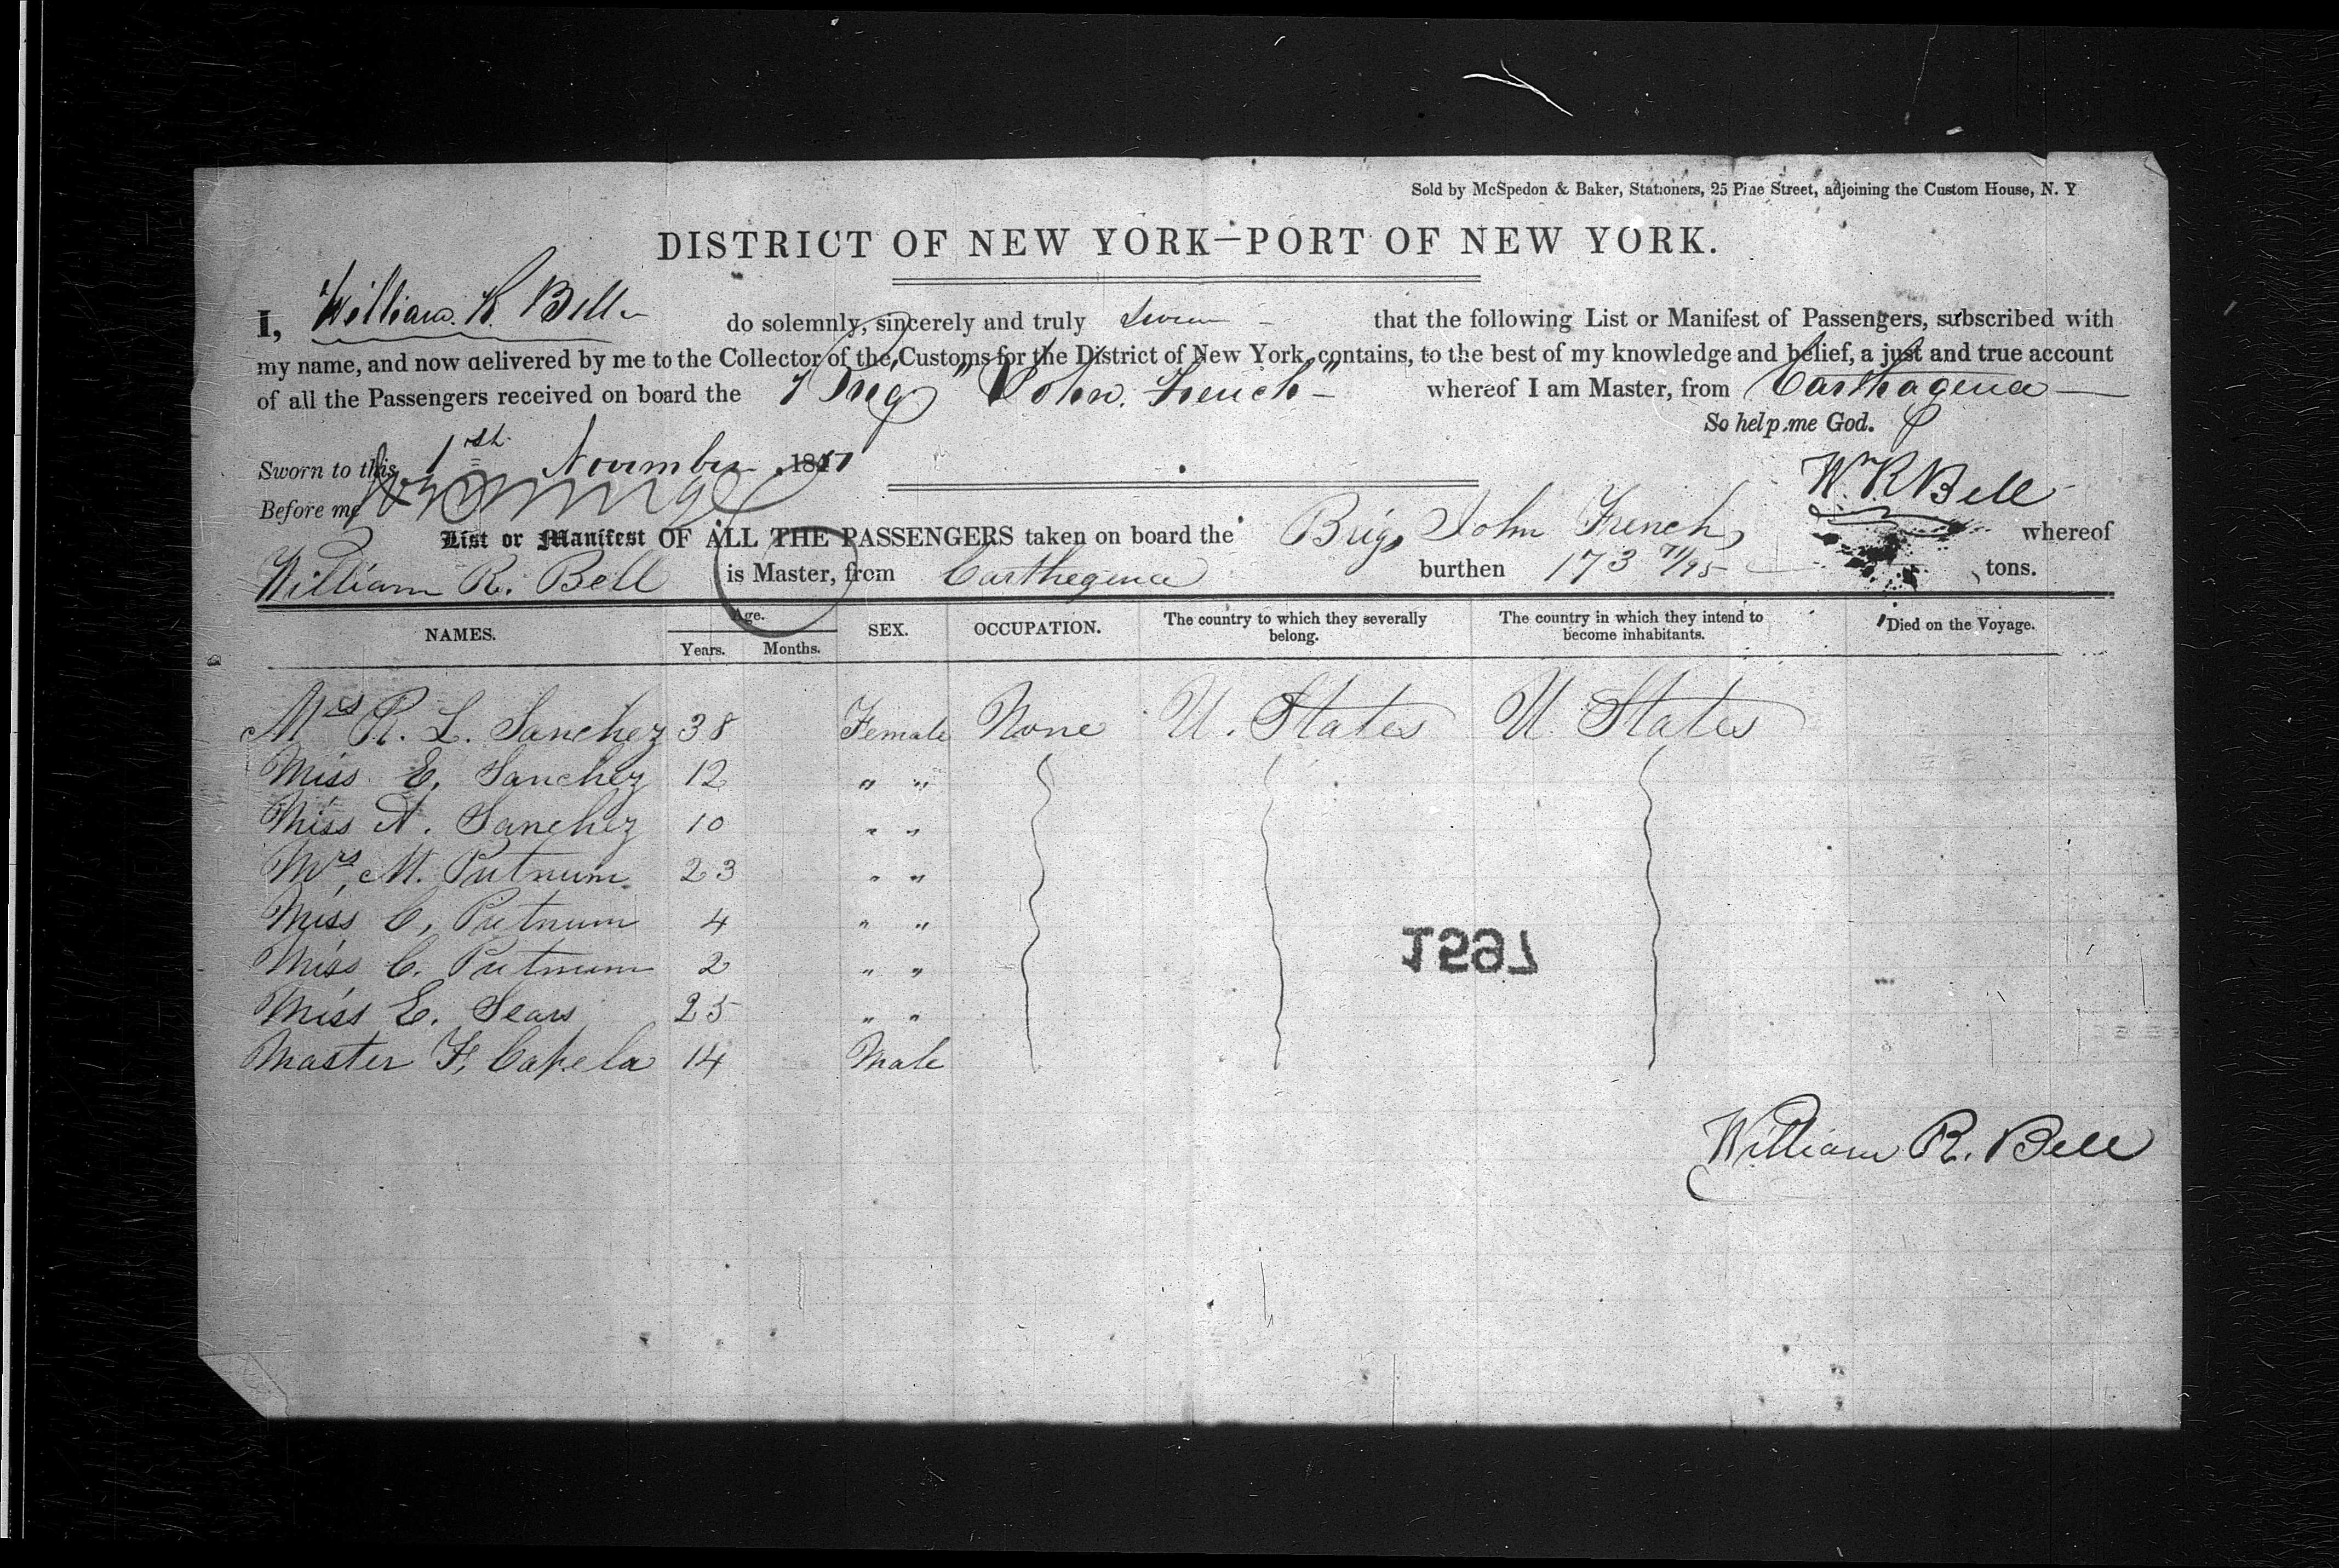 Sold by McSpedon & Baker, Stationers, 25 Pine Street, adjoining the Custom House, N. Y
DISTRICT OF NEW YORK—PORT OF NEW YORK.
I, William. R. Bell do solemnly, sincerely and truly swear that the following List or Manifest of Passengers, subscribed with
my name, and now delivered by me to the Collector of the Customs for the District of New York, contains, to the best of my knowledge and belief, a just and true account
of all the Passengers received on board the Brig "John. French" whereof I am Master, from Carthagena
So help me God.
Sworn to this 1st November 18
Wm R Bell
Before me
List or Manifest OF ALL THE PASSENGERS taken on board the Brig John French whereof
William R. Bell is Master, from Carthegena burthen 173 71/95 tons.
NAMES. Age. Years. Months. SEX. OCCUPATION. The country to which they severally belong. The country in which they intend to become inhabitants. Died on the Voyage.
Mrs R. L. Sanchez 38 Female None U. States U States
Miss E. Sanchez 12 " "
Miss A. Sanchez 10 " "
Mrs M. Putnum 23 " "
Miss C, Putnum 4 " "
Miss C. Putnum 2 " "
Miss E. Sears 25 " "
Master F. Capela 14 Male
1597
William R. Bell